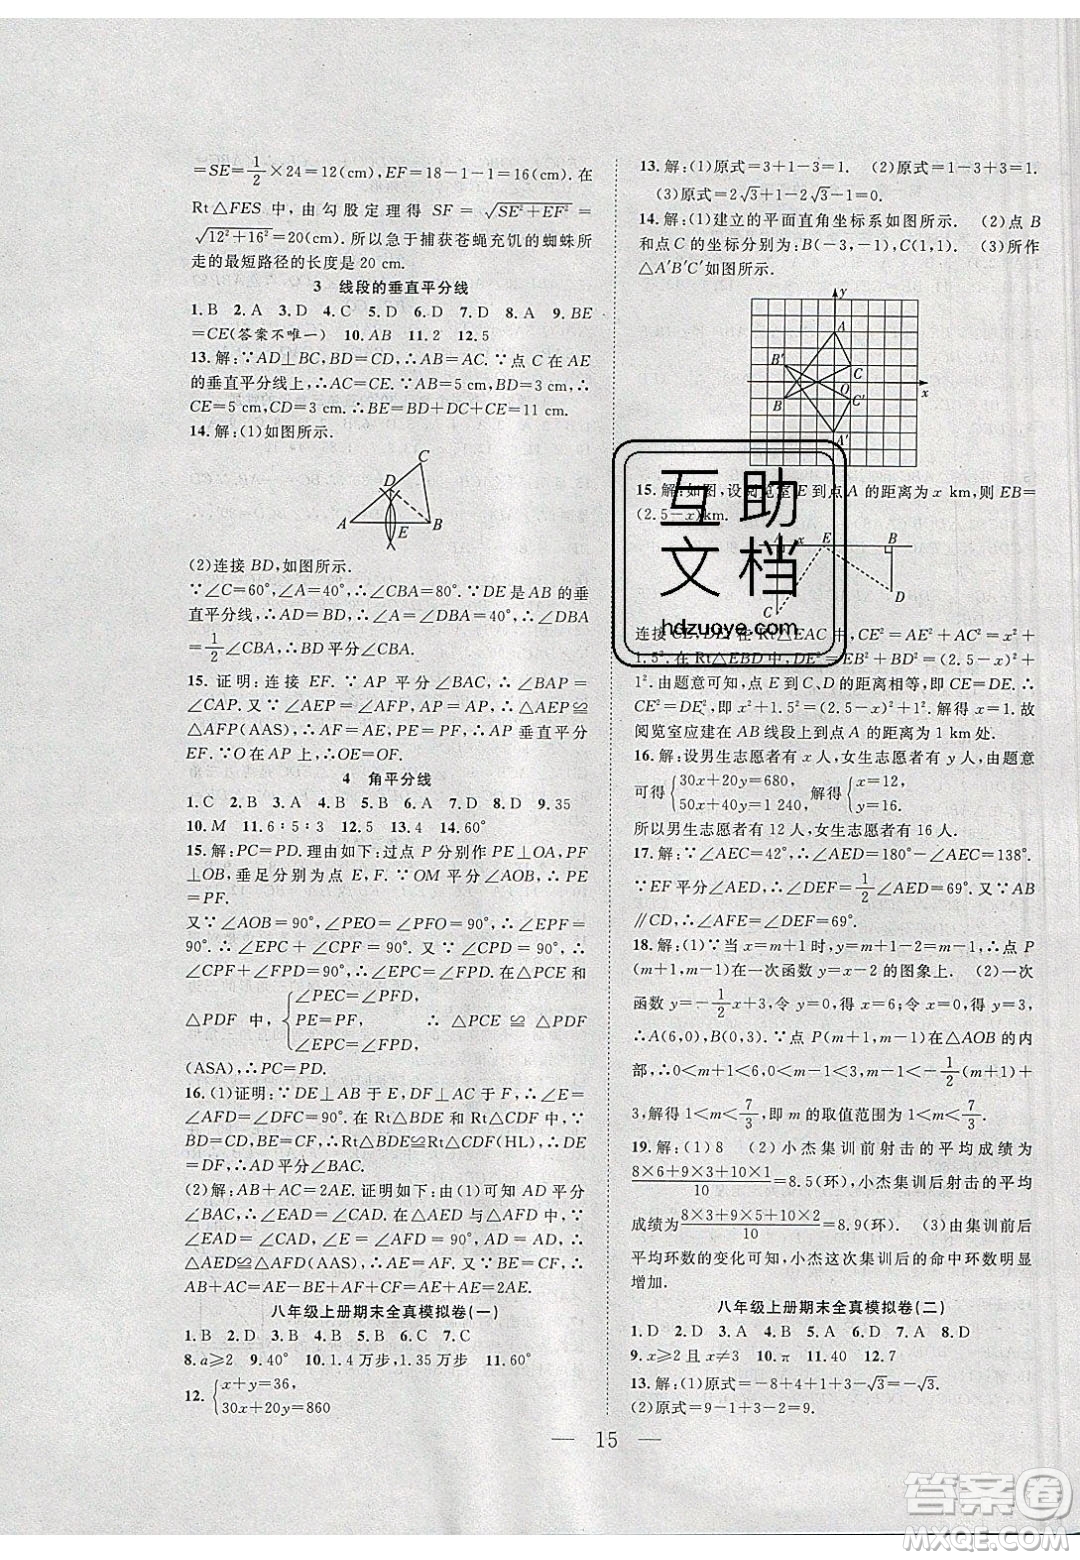 =SE=1/2×24=12(cm),EF=18-1-1=16(cm).在
Rt△FES 中,由勾股定理得 SF=√(SE²+EF²)=
√(12²+16²)=20(cm).所以急于捕获苍蝇充饥的蜘蛛所
走的最短路径的长度是 20 cm.
3 线段的垂直平分线
1.B 2.A 3.D 4.C 5.D 6.D 7.D 8.A 9.BE
=CE(答案不唯一) 10.AB 11.2 12.5
13.解:∵AD⊥BC,BD=CD,∴AB=AC.∵点 C 在 AE
的垂直平分线上,∴AC=CE.∵AB=5 cm,BD=3 cm,∴
CE=5 cm,CD=3 cm.∴BE=BD+DC+CE=11 cm.
14.解:(1)如图所示.
C
D
A
E
B
(2)连接 BD,如图所示.
∵∠C=60°,∠A=40°,∴∠CBA=80°.∵DE 是 AB 的垂
直平分线,∴AD=BD,∴∠A=∠DBA=40°,∴∠DBA
=1/2∠CBA,∴BD 平分∠CBA.
15.证明:连接 EF.∵AP 平分∠BAC,∴∠BAP=
∠CAP.又∵∠AEP=∠AFP=90°,AP=AP,∴△AEP≌
△AFP(AAS),∴AF=AE,AP=AP,∴AP 垂直平分
EF.∵O 在 AP 上,∴OE=OF.
4 角平分线
1.C 2.B 3.A 4.B 5.D 6.A 7.D 8.D 9.35
10.M 11.6∶5∶3 12.5 13.4 14.60°
15.解:PC=PD.理由如下:过点 P 分别作 PE⊥OA,PF⊥
OB,垂足分别为点 E,F.∵OM 平分∠AOB,∴PE=
PF.
又∵∠AOB=90°,∠PEO=∠PFO=90°,∴∠EPF=
90°,∴∠EPC+∠CPF=90°.又∵∠CPD=90°,∴
∠CPF+∠FPD=90°,∴∠EPC=∠FPD.在△PCE 和
△PDF 中,{∠PEC=∠PFD,
PE=PF,
∠EPC=∠FPD, ∴△PCE≌△PDF
(ASA),∴PC=PD.
16.(1)证明:∵DE⊥AB 于 E,DF⊥AC 于 F,∴∠E=
∠AFD=∠DFC=90°.在 Rt△BDE 和 Rt△CDF 中,∵
BD=CD,BE=CF,∴Rt△BDE≌Rt△CDF(HL),∴DE
=DF,∴AD平分∠BAC.
(2)解:AB+AC=2AE.证明如下:由(1)可知 AD 平分
∠BAC,∴∠EAD=∠CAD.在△AED 与△AFD 中,∵
∠EAD=∠CAD,∠E=∠AFD=90°,AD=AD,∴
△AED≌△AFD(AAS),∴AE=AF.又∵BE=CF,∴
AB+AC=AE-BE+AF+CF=AE+AE=2AE.
八年级上册期末全真模拟卷(一)
1.B 2.D 3.B 4.B 5.C 6.C 7.C
8.a≥2 9.40° 10.1.4 万步,1.1 万步 11.60°
12.{x+y=36,
30x+20y=860
13.解:(1)原式=3+1-3=1. (2)原式=1-3+3=1.
(3)原式=2√3+1-2√3-1=0.
14.解:(1)建立的平面直角坐标系如图所示. (2)点 B
和点 C 的坐标分别为:B(-3,-1),C(1,1). (3)所作
△A′B′C′如图所示.
y
A
B′
C
O
x
B
C′
A′
15.解:如图,设阅览室 E 到点 A 的距离为 x km,则 EB=
(2.5-x)km.
A x E B
D
C
连接 CE,DE,在 Rt△EAC 中,CE²=AE²+AC²=x²+
1.5².在 Rt△EBD 中,DE²=EB²+BD²=(2.5-x)²+
1².由题意可知,点 E 到 C、D 的距离相等,即 CE=DE.∴
CE²=DE²,即 x²+1.5²=(2.5-x)²+1².解得 x=1.故
阅览室应建在 AB 线段上到点 A 的距离为 1 km 处.
16.解:设男生志愿者有 x 人,女生志愿者有 y 人,由题意
可得{30x+20y=680,
50x+40y=1 240, 解得{x=12,
y=16.
所以男生志愿者有 12 人,女生志愿者有 16 人.
17.解:∵∠AEC=42°,∴∠AED=180°-∠AEC=138°.
∵EF平分∠AED,∴∠DEF=1/2∠AED=69°.又∵AB
∥CD,∴∠AFE=∠DEF=69°.
18.解:(1)∵当 x=m+1 时,y=m+1-2=m-1,∴点
P(m+1,m-1)在一次函数 y=x-2 的图象上. (2)一次
函数 y=-1/2x+3,令 y=0,得 x=6;令 x=0,得 y=3,
∴A(6,0),B(0,3).∵点 P(m+1,m-1)在△AOB 的内
部,∴0<m+1<6,0<m-1<3,m-1<-1/2(m+1)+
3,解得 1<m<7/3,即 m 的取值范围为 1<m<7/3.
19.解:(1)8 (2)小杰集训前射击的平均成绩为
(8×6+9×3+10×1)/10=8.5(环),小杰集训后射击的平均
成绩为(8×3+9×5+10×2)/10=8.9(环). (3)由集训前后
平均环数的变化可知,小杰这次集训后的命中环数明显
增加.
八年级上册期末全真模拟卷(二)
1.D 2.D 3.C 4.A 5.B 6.A 7.A 8.D
9.x≥2 且 x≠3 10.π 11.40 12.7
13.解:(1)原式=-8+4+1+3-√3=-√3.
(2)原式=9-1+3-9=2.
— 15 —
互助
文档
hdzuoye.com
答案圈
MXQE.COM